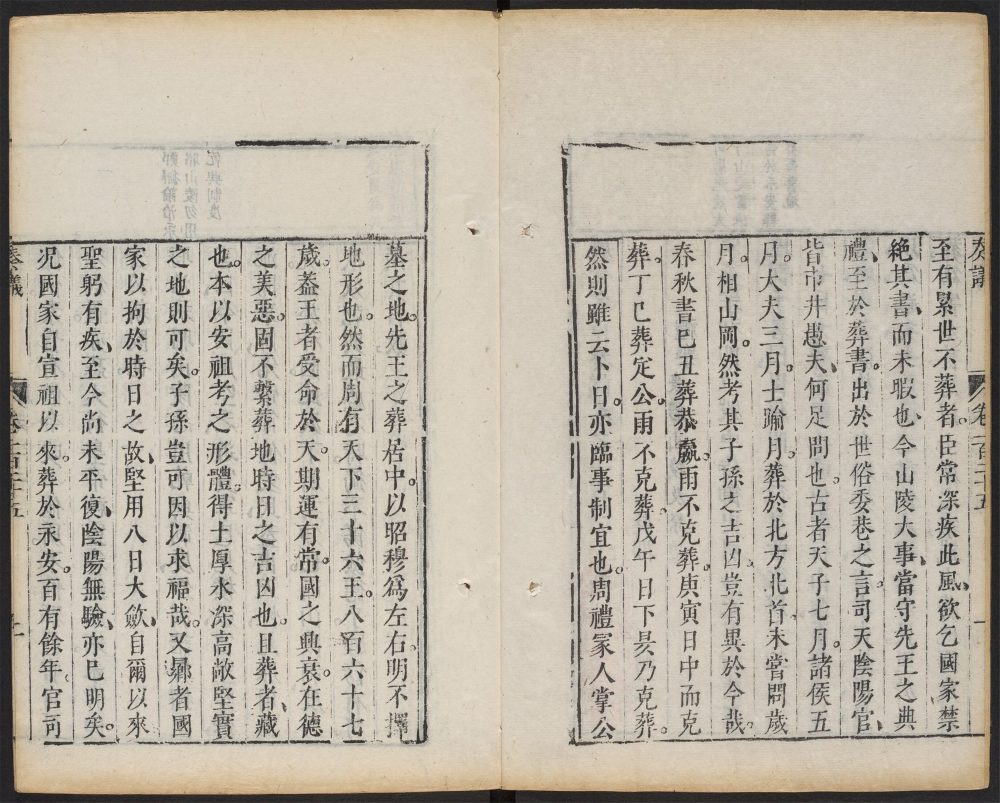 奏議
卷一百二十五
至有累世不葬者。臣常深疾此風、欲乞國家禁
絶其書、而未暇也、今山陵大事、當守先王之典
禮至於葬書。出於世俗委巷之言。司天陰陽官、
皆市井愚夫、何足問也。古者天子七月。諸侯五
月。大夫三月。士踰月。葬於北方北首、未嘗問歲
月。相山岡。然考其子孫之吉凶。豈有異於今哉。
春秋書己丑葬恭嬴。雨不克葬。庚寅日中而克
葬。丁巳葬定公。雨不克葬。戊午日下昃。乃克葬。
然則雖云卜日、亦臨事制宜也。周禮冢人掌公
墓之地。先王之葬居中。以昭穆爲左右。明不擇
地形也。然而周有天下三十六王。八百六十七
歲。蓋王者受命於天。期運有常。國之興衰、在德
之美惡。固不繫葬地時日之吉凶也。且葬者、藏
也。本以安祖考之形體。得土厚水深高敞堅實
之地則可矣。子孫豈可因以求福哉。又曏者國
家以拘於時日之故、堅用八日大斂、自爾以來
聖躬有疾、至今尚未平復、陰陽無驗、亦已明矣。
况國家自宣祖以來、葬於永安。百有餘年。官司
奏議
卷一百二十五